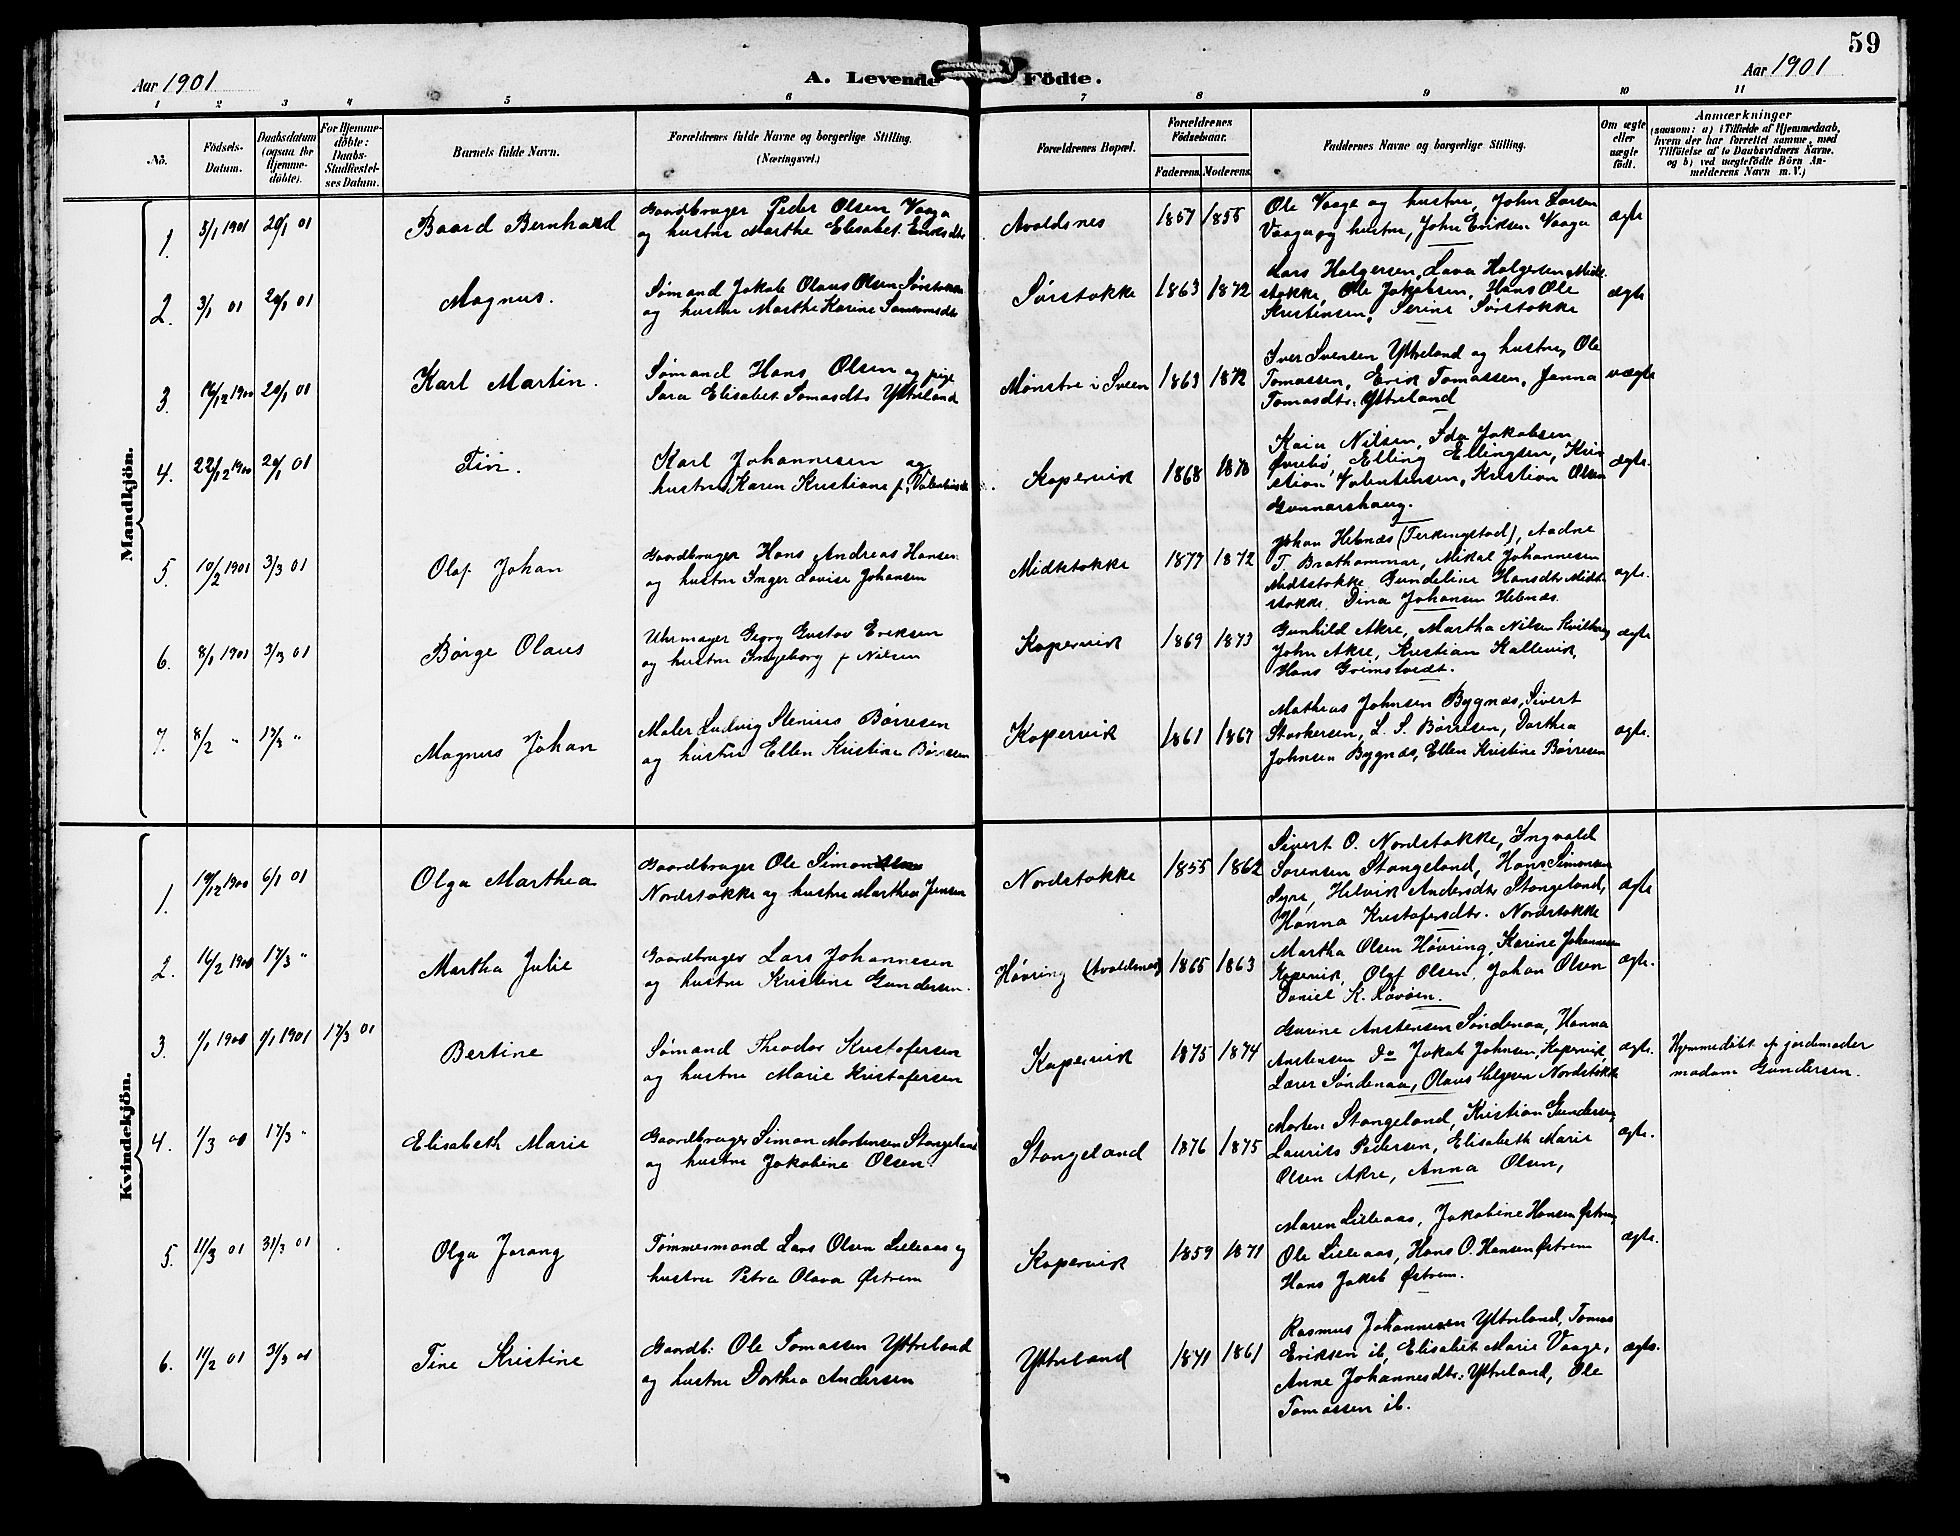 59
Aar 1901
A. Levende Födte.
Aar 1901
1 2 3 4 5 6 7 8 9 10 11
No.
Födsels-
Datum.
Daabsdatum
(ogsaa for
Hjemme-
döbte).
For Hjemme-
döbte:
Daabs-
Stadfæstel-
ses Datum.
Barnets fulde Navn.
Forældrenes fulde Navne og borgerlige Stilling.
(Næringsvei.)
Forældrenes Bopæl.
Forældrenes
Födselsaar.
Faderens. Moderens.
Faddernes Navne og borgerlige Stilling.
Om ægte
eller
uægte
födt.
Anmærkninger
(saasom: a) i Tilfælde af Hjemmedaab,
hvem der har forrettet samme, med
Tilföielse af to Daabsvidners Navne.
og b) ved uægtefödte Börn An-
melderens Navn m. V.)
Mandkjön.
1. 5/1 1901 20/1 01
Baard Bernhard
Gaardbruger Peder Olsen Vaaga
og hustru Marthe Elisabet Eriksdtr
Avaldsnes
1857 1855
Ole Vaage og hustru, John Larsen
Vaage og hustru, John Eriksen Vaage
ægte
2. 3/1 01 20/1 01
Magnus.
Sømand Jakob Olaus Olsen Sørstokke
og hustru Marthe Karine
Sørstokke
1863 1872
Lars Holgersen, Lava Holgersen Mids-
stokke, Ole Jakobsen, Hans Ole
Kristensen, Serine Sørstokke
ægte
3. 16/12 1900 20/1 01
Karl Martin.
Sømand Hans Olsen og pige
Sara Elisabet Tomasdtr Ytreland
Mønstre i Sveen
1863 1872
Iver Svensen Ytreland og hustru, Ole
Tomassen, Erik Tomassen, Janna
Tomasdtr. Ytreland
uægte
4. 22/12 1900 20/1 01
Karl Johannesen og
hustru Karen Kristiane f.
Kopervik
1868
Kaia Nilsen, Ida Jakobsen
Øvrebø, Elling Ellingsen, Kri-
stian Valentensen, Kristian Olsen
Gunnarshaug.
ægte.
5. 10/2 1901 3/3 01
Olaf Johan
Gaardbruger Hans Andreas Hansen
og hustru Inger Lovise Johansen
Midtstokke
1877 1872
Johan Hebnes (Ferkingstad), Aadne
T. Brathammar, Mikal Johannesen
Midtstokke Gundeline Hansdtr Midt-
stokke. Dina Johansen Hebnæs.
ægte.
6. 8/1 1901 3/3 01
Børge Olaus
Uhrmager Georg Gustav Eriksen
og hustru Ingeborg f. Nilsen
Kopervik
1869 1873
Gunhild Akre, Martha Nilsen
John Akre, Kristian Kallevik,
Hans Grimstvedt.
ægte
7. 8/2 " 17/3 "
Magnus Johan
Maler Ludvig Stenius Børresen
og hustru Ellen Kristine Børresen
Kopervik
1861 1867
Mathias Johnsen Bygnæs, Sivert
Storkersen, L. S. Børresen, Dorthea
Johnsen Bygnæs, Ellen Kristine Børresen
ægte.
Kvindekjön.
1. 19/12 1900 6/1 01
Olga Marthea
Gaardbruger Ole Simonsen
Nordstokke og hustru Marthea Jensen
Nordstokke
1855 1862
Sivert O. Nordstokke, Ingvald
Sørensen Stangeland, Hans Simonsen
Syre, Helvik Andersdtr Stangeland,
Hanna Kristofersdtr. Nordstokke
ægte
2. 16/2 1900 17/3 "
Martha Julie
Gaardbruger Lars Johannesen
og hustru Kristine Gundersen.
Høvring (Avaldsnes)
1865 1863
Martha Olsen Høvring, Karine Johannesen
Kopervik, Olaf Olsen, Johan Olsen
Daniel K. Røvøen.
ægte.
3. 1/1 1900 1/1 1901 17/3 01
Bertine
Sømand Theodor Kristofersen
og hustru Marie Kristofersen
Kopervik
1875 1874
Gurine Anstensen Søndenaa, Hanna
Anstensen Do Jakob Johnsen, Kopervik,
Lærer Søndenaa, Olaus Helgesen Nordstokke
ægte.
Hjemmedøbt af jordemoder
madam Gundersen.
4. 1/3 00 17/3 "
Elisabeth Marie
Gaardbruger Simon Mortensen Stangeland
og hustru Jakobine Olsen.
Stangeland
1876 1875
Morten Stangeland, Kristian Gundersen,
Laurits Pedersen, Elisabeth Marie
Olsen Akre, Anna Olsen,
ægte.
5. 11/3 01 31/3 01
Olga Jorang
Tømmermand Lars Olsen Lilleaas og
hustru Petra Olava Østrem
Kopervik
1859 1871
Maren Lilleaas, Jakobine Hansen Østrem,
Ole Lilleaas, Hans O. Hansen Østrem
Hans Jakob Østrem.
ægte.
6. 11/2 01 31/3 01
Tine Kristine
Gaardb: Ole Tomassen Ytreland
og hustru Dorthea Andersen
Ytreland
1841 1861
Rasmus Johannesen Ytreland, Tomas
Eriksen ib, Elisabet Marie Vaage,
Anne Johannesdtr. Ytreland, Ole
Tomassen ib.
ægte.